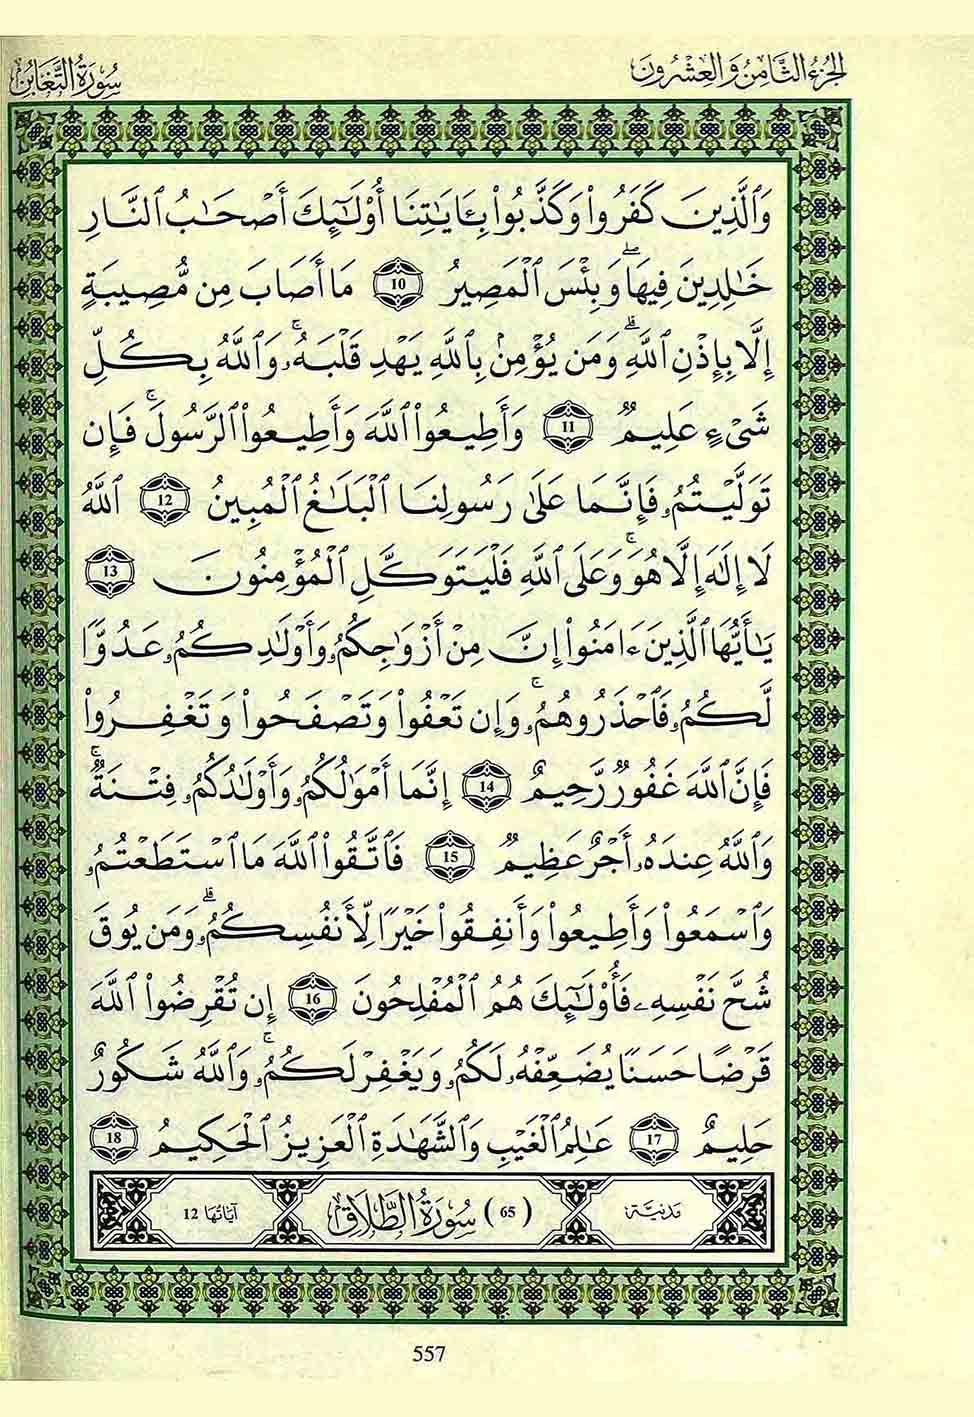 الجزء الثامن والعشرون
سورة التغابن
وَٱلَّذِينَ كَفَرُوا۟ وَكَذَّبُوا۟ بِـَٔايَـٰتِنَا أُو۟لَـٰٓئِكَ أَصْحَـٰبُ ٱلنَّارِ
خَـٰلِدِينَ فِيهَا ۖ وَبِئْسَ ٱلْمَصِيرُ 10 مَا أَصَابَ مِن مُّصِيبَةٍ
إِلَّا بِإِذْنِ ٱللَّهِ ۗ وَمَن يُؤْمِنۢ بِٱللَّهِ يَهْدِ قَلْبَهُۥ ۚ وَٱللَّهُ بِكُلِّ
شَىْءٍ عَلِيمٌ 11 وَأَطِيعُوا۟ ٱللَّهَ وَأَطِيعُوا۟ ٱلرَّسُولَ ۚ فَإِن
تَوَلَّيْتُمُۥ فَإِنَّمَا عَلَىٰ رَسُولِنَا ٱلْبَلَـٰغُ ٱلْمُبِينُ 12 ٱللَّهُ
لَا إِلَـٰهَ إِلَّا هُوَ ۚ وَعَلَى ٱللَّهِ فَلْيَتَوَكَّلِ ٱلْمُؤْمِنُونَ 13
يَـٰأَيُّهَا ٱلَّذِينَ ءَامَنُوا۟ إِنَّ مِنْ أَزْوَٰجِكُمُۥ وَأَوْلَـٰدِكُمُۥ عَدُوًّا
لَّكُمُۥ فَٱحْذَرُوهُمُۥ ۚ وَإِن تَعْفُوا۟ وَتَصْفَحُوا۟ وَتَغْفِرُوا۟
فَإِنَّ ٱللَّهَ غَفُورٌ رَّحِيمٌ 14 إِنَّمَا أَمْوَٰلُكُمُۥ وَأَوْلَـٰدُكُمُۥ فِتْنَةٌ ۚ
وَٱللَّهُ عِندَهُۥ أَجْرٌ عَظِيمٌ 15 فَٱتَّقُوا۟ ٱللَّهَ مَا ٱسْتَطَعْتُمُۥ
وَٱسْمَعُوا۟ وَأَطِيعُوا۟ وَأَنفِقُوا۟ خَيْرًا لِّأَنفُسِكُمُۥ ۗ وَمَن يُوقَ
شُحَّ نَفْسِهِۦ فَأُو۟لَـٰٓئِكَ هُمُ ٱلْمُفْلِحُونَ 16 إِن تُقْرِضُوا۟ ٱللَّهَ
قَرْضًا حَسَنًا يُضَعِّفْهُۥ لَكُمُۥ وَيَغْفِرْ لَكُمُۥ ۚ وَٱللَّهُ شَكُورٌ
حَلِيمٌ 17 عَـٰلِمُ ٱلْغَيْبِ وَٱلشَّهَـٰدَةِ ٱلْعَزِيزُ ٱلْحَكِيمُ 18
مدنية (65) سورة الطلاق آياتها 12
557